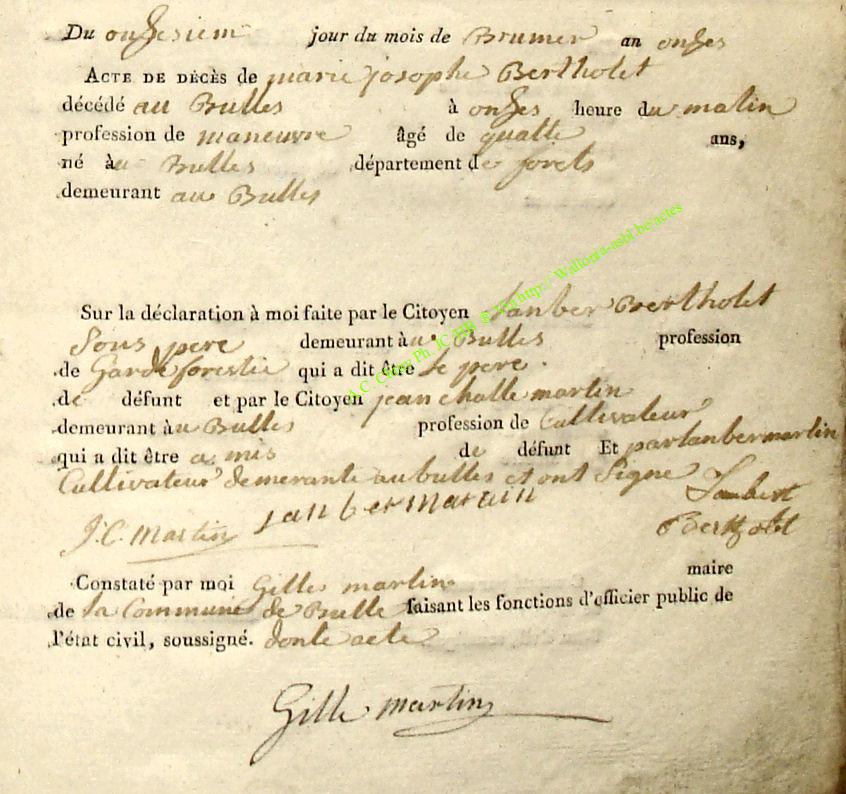 Du onzesiem jour du mois de Brumer an onzes
ACTE DE DÉCÈS de marie josophe Bertholet
décédé au Bulles à onzes heure du matin
profession de maneuvre âgé de quatte ans,
né àu Bulles département de forets
demeurant au Bulles
Sur la déclaration à moi faite par le Citoyen Lanber Bertholet
Sous pere demeurant àu Bulles profession
de Garde forestie qui a dit être Le pere
de défunt et par le Citoyen jean challe martin
demeurant àu Bulles profession de Cultivateur
qui a dit être a mis de défunt Et par lanber martin
Cultivateur demerante au bulles et ont Signe Lambert
J.C. Martin lanber martin Bertholet
Constaté par moi Gilles martin maire
de la Commune de Bulle faisant les fonctions d'officier public de
l'état civil, soussigné. donte acte
Gille martin